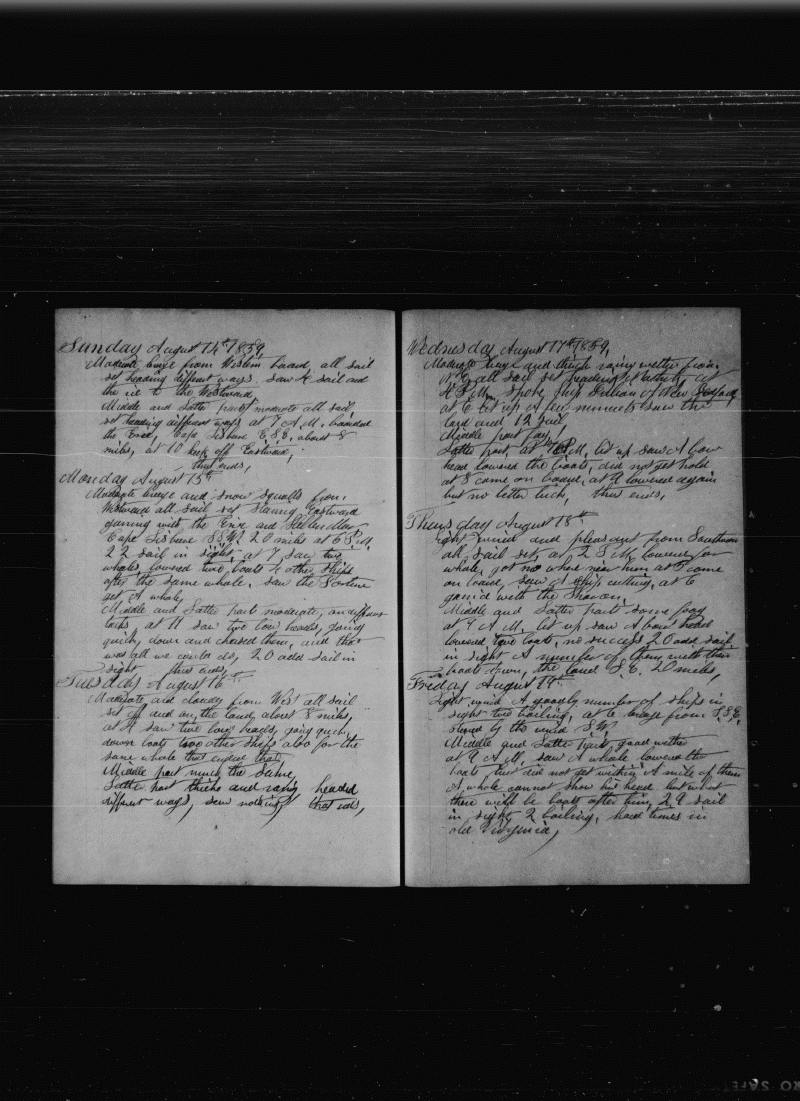 Sunday August 14th 1859,
Moderate breze from Western board, all sail
set heading different ways. saw 4 sail and
the ice to the Westward
Middle and Latter parts moderate all sail
set heading different ways at 7 A.M. boarded
the Cape Lisbure E.S.E. about 8
miles, at 10 kept off Eastward,
this ends,
Monday August 15th
Moderate breeze and snow squalls from
Westward all sail set Eastward
gaming with the and
Cape Lisbure S.S.W. 20 miles at 6 P.M.
22 sail in sight at 7 saw two
whales, lowered two boats 4 other ships
after the same whale, saw the
get A whale,
Middle and Latter parts moderate, on different
tacks, at 11 saw two bow heads, going
quick, down and chased them, and that
was all we could do, 20 odd sail in
sight this ends,
Tuesday August 16th
Moderate and cloudy from West all sail
set off and on, the land, about 8 miles,
at 4 saw two bow heads, going quick,
down boats two other ships also for the
same whale that ended that,
Middle part much the same,
Latter part thicke and rany headed
different ways, saw nothing that ends,
Wednesday August 17th 1859,
Moderate breze and thick rainy wether from
all sail set heading at
4 P.M. spoke ship of New Bedford,
at 6 let up A few minuets saw the
land and 12 sail
Middle part fog,
Latter part, at A.M. let up saw A bow
head lowered the boats, did not get hold
at 8 came on board, at 9 lowered again
but no better luck, thus ends,
Thursday August 18th
Light wind and pleasant from Southward
all sail set, at 2 P.M. lowered for
whale, got no where near him at 5 come
on board, saw A ship cutting, at 6
gamed with the Sharon,
Middle and Latter parts some fog
at 9 A.M. let up saw A bow head
lowered two boats, no success 20 odd sail
in sight A number of them with their
boats down, the land S.E. 20 miles,
Friday August 19th
Light wind A goodly number of ships in
sight two boiling, at 6 breeze from S.S.E.
stood by the wind S.W.
Middle and Latter part, good wether
at 9 A.M. saw A whale lowered the
boats but did not get within A mile of them
A whale cannot show his head but what
there will be boats after him, 29 sail
in sight 2 boiling, hard times in
old Virginia,